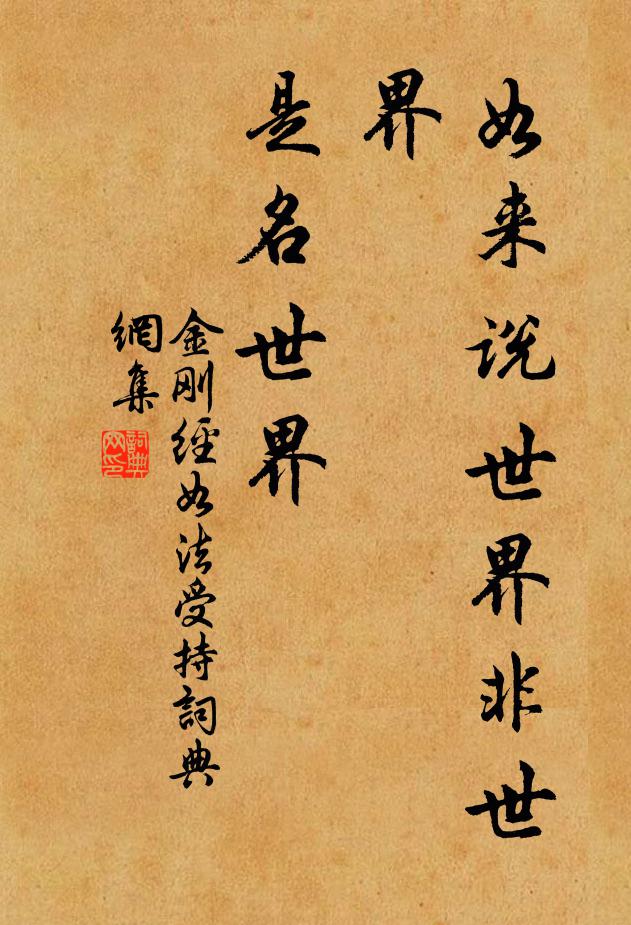 如来说世界非世
界
是名世界
金剛經如法受持詞典
網集
詞典
网印